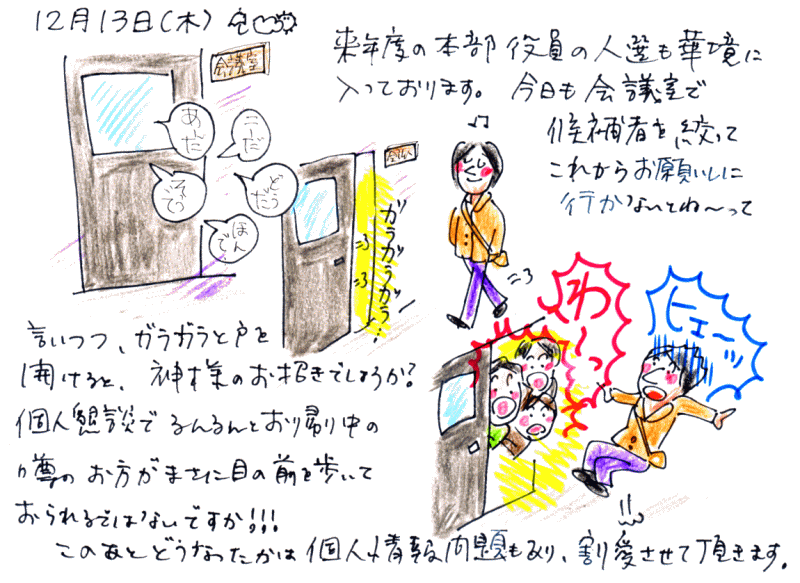 12月13日(木)
来年度の本部役員の人選も華境に
入っております。今日も会議室で
候補者を絞って
これからお願いしに
行かないとね〜って
会議室
あーだ
こーだ
そって
どだう
ほんで
ガラガラガラ…
♪
言いつつ、ガラガラと戸を
開けると、神様のお招きでしょうか?
個人懇談でるんるんとお帰り中の
噂のお方がまさに目の前を歩いて
おられるではないですか!!!
わ〜っ
ヒェーッ
このあとどうなったかは個人情報問題もあり、割愛させて頂きます。